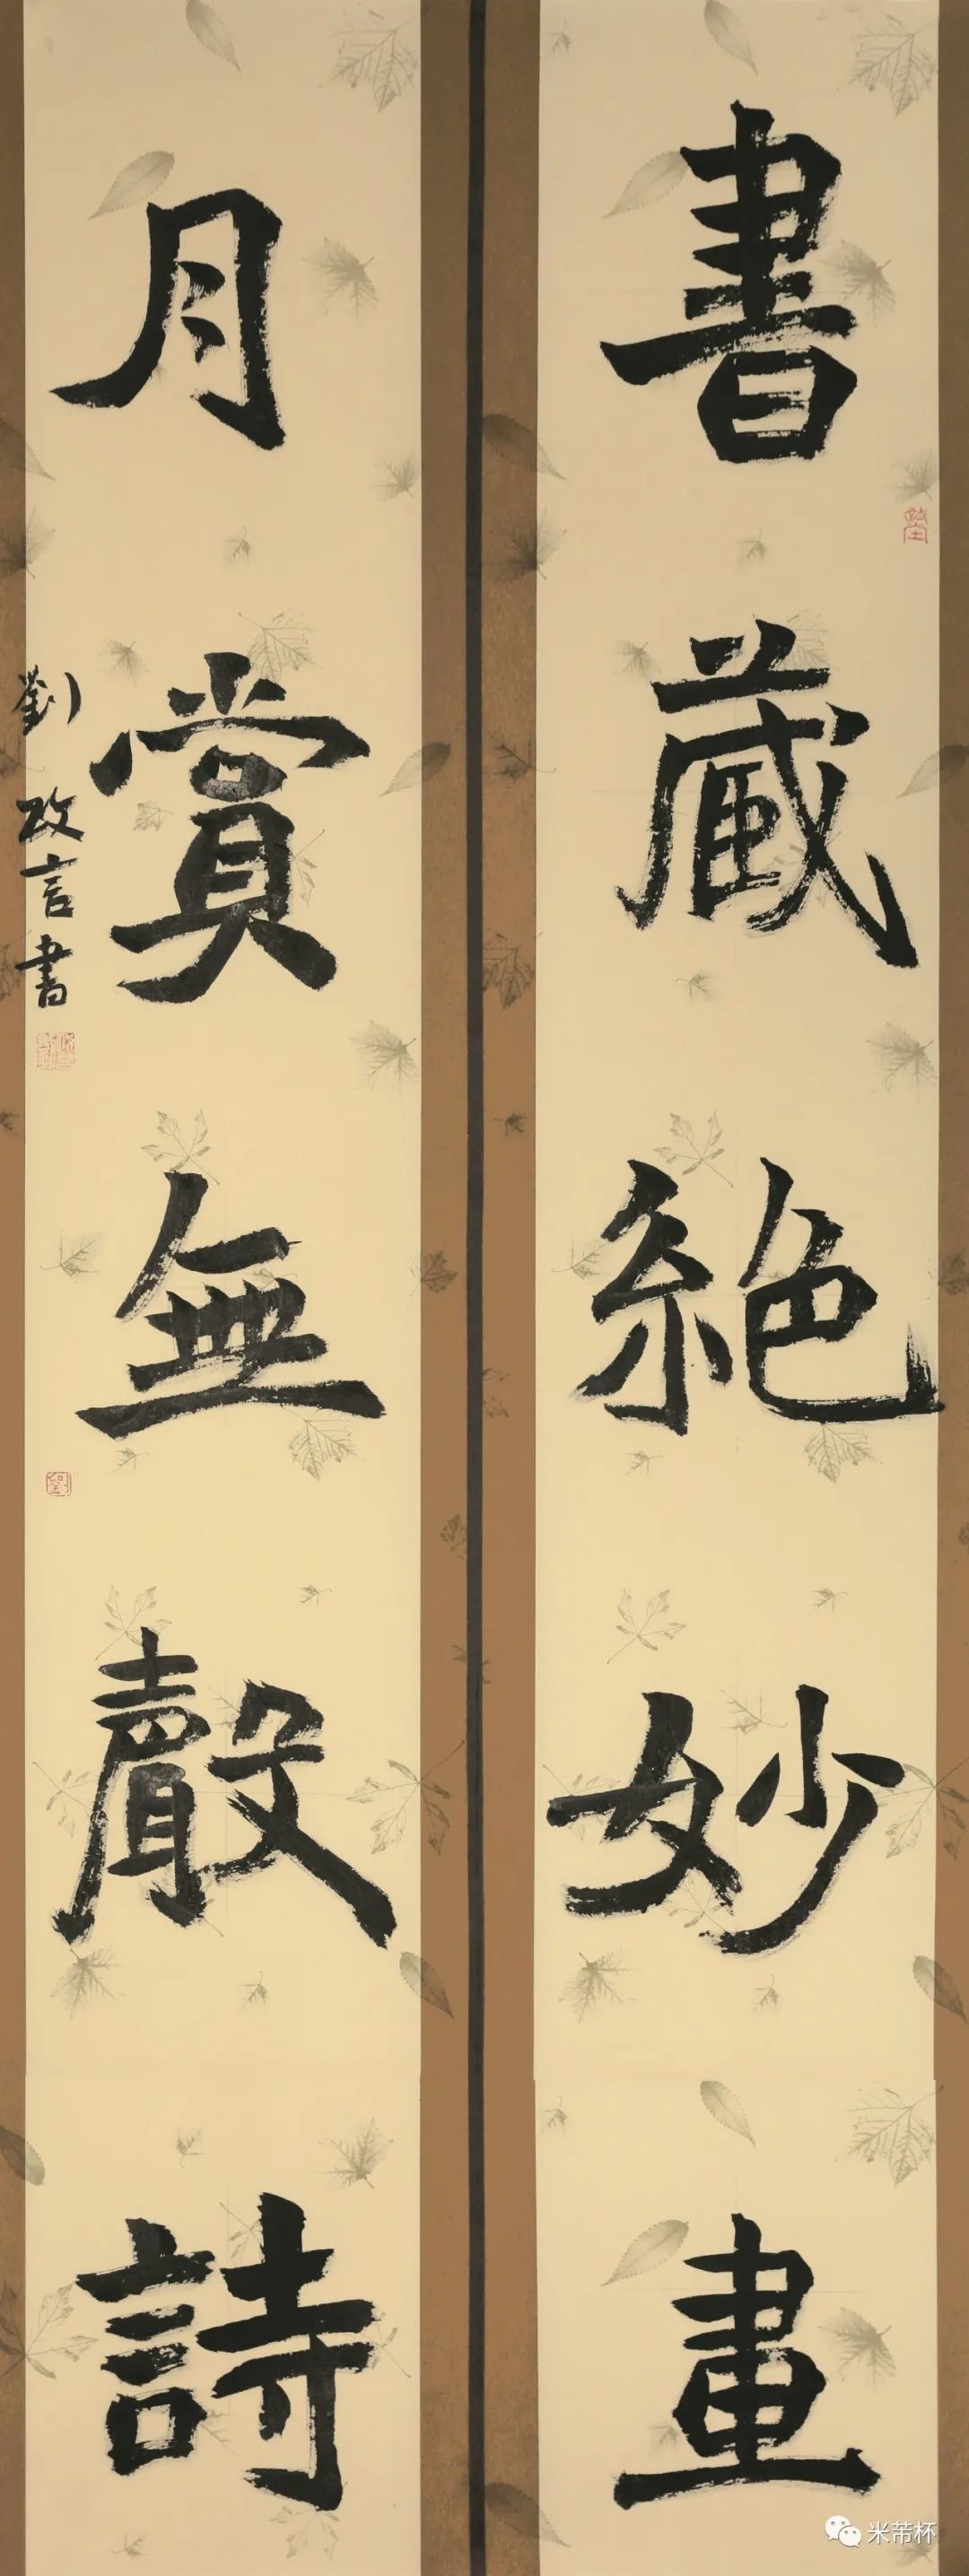 書藏絶妙畫
月賞無聲詩
劉政言書
米芾杯